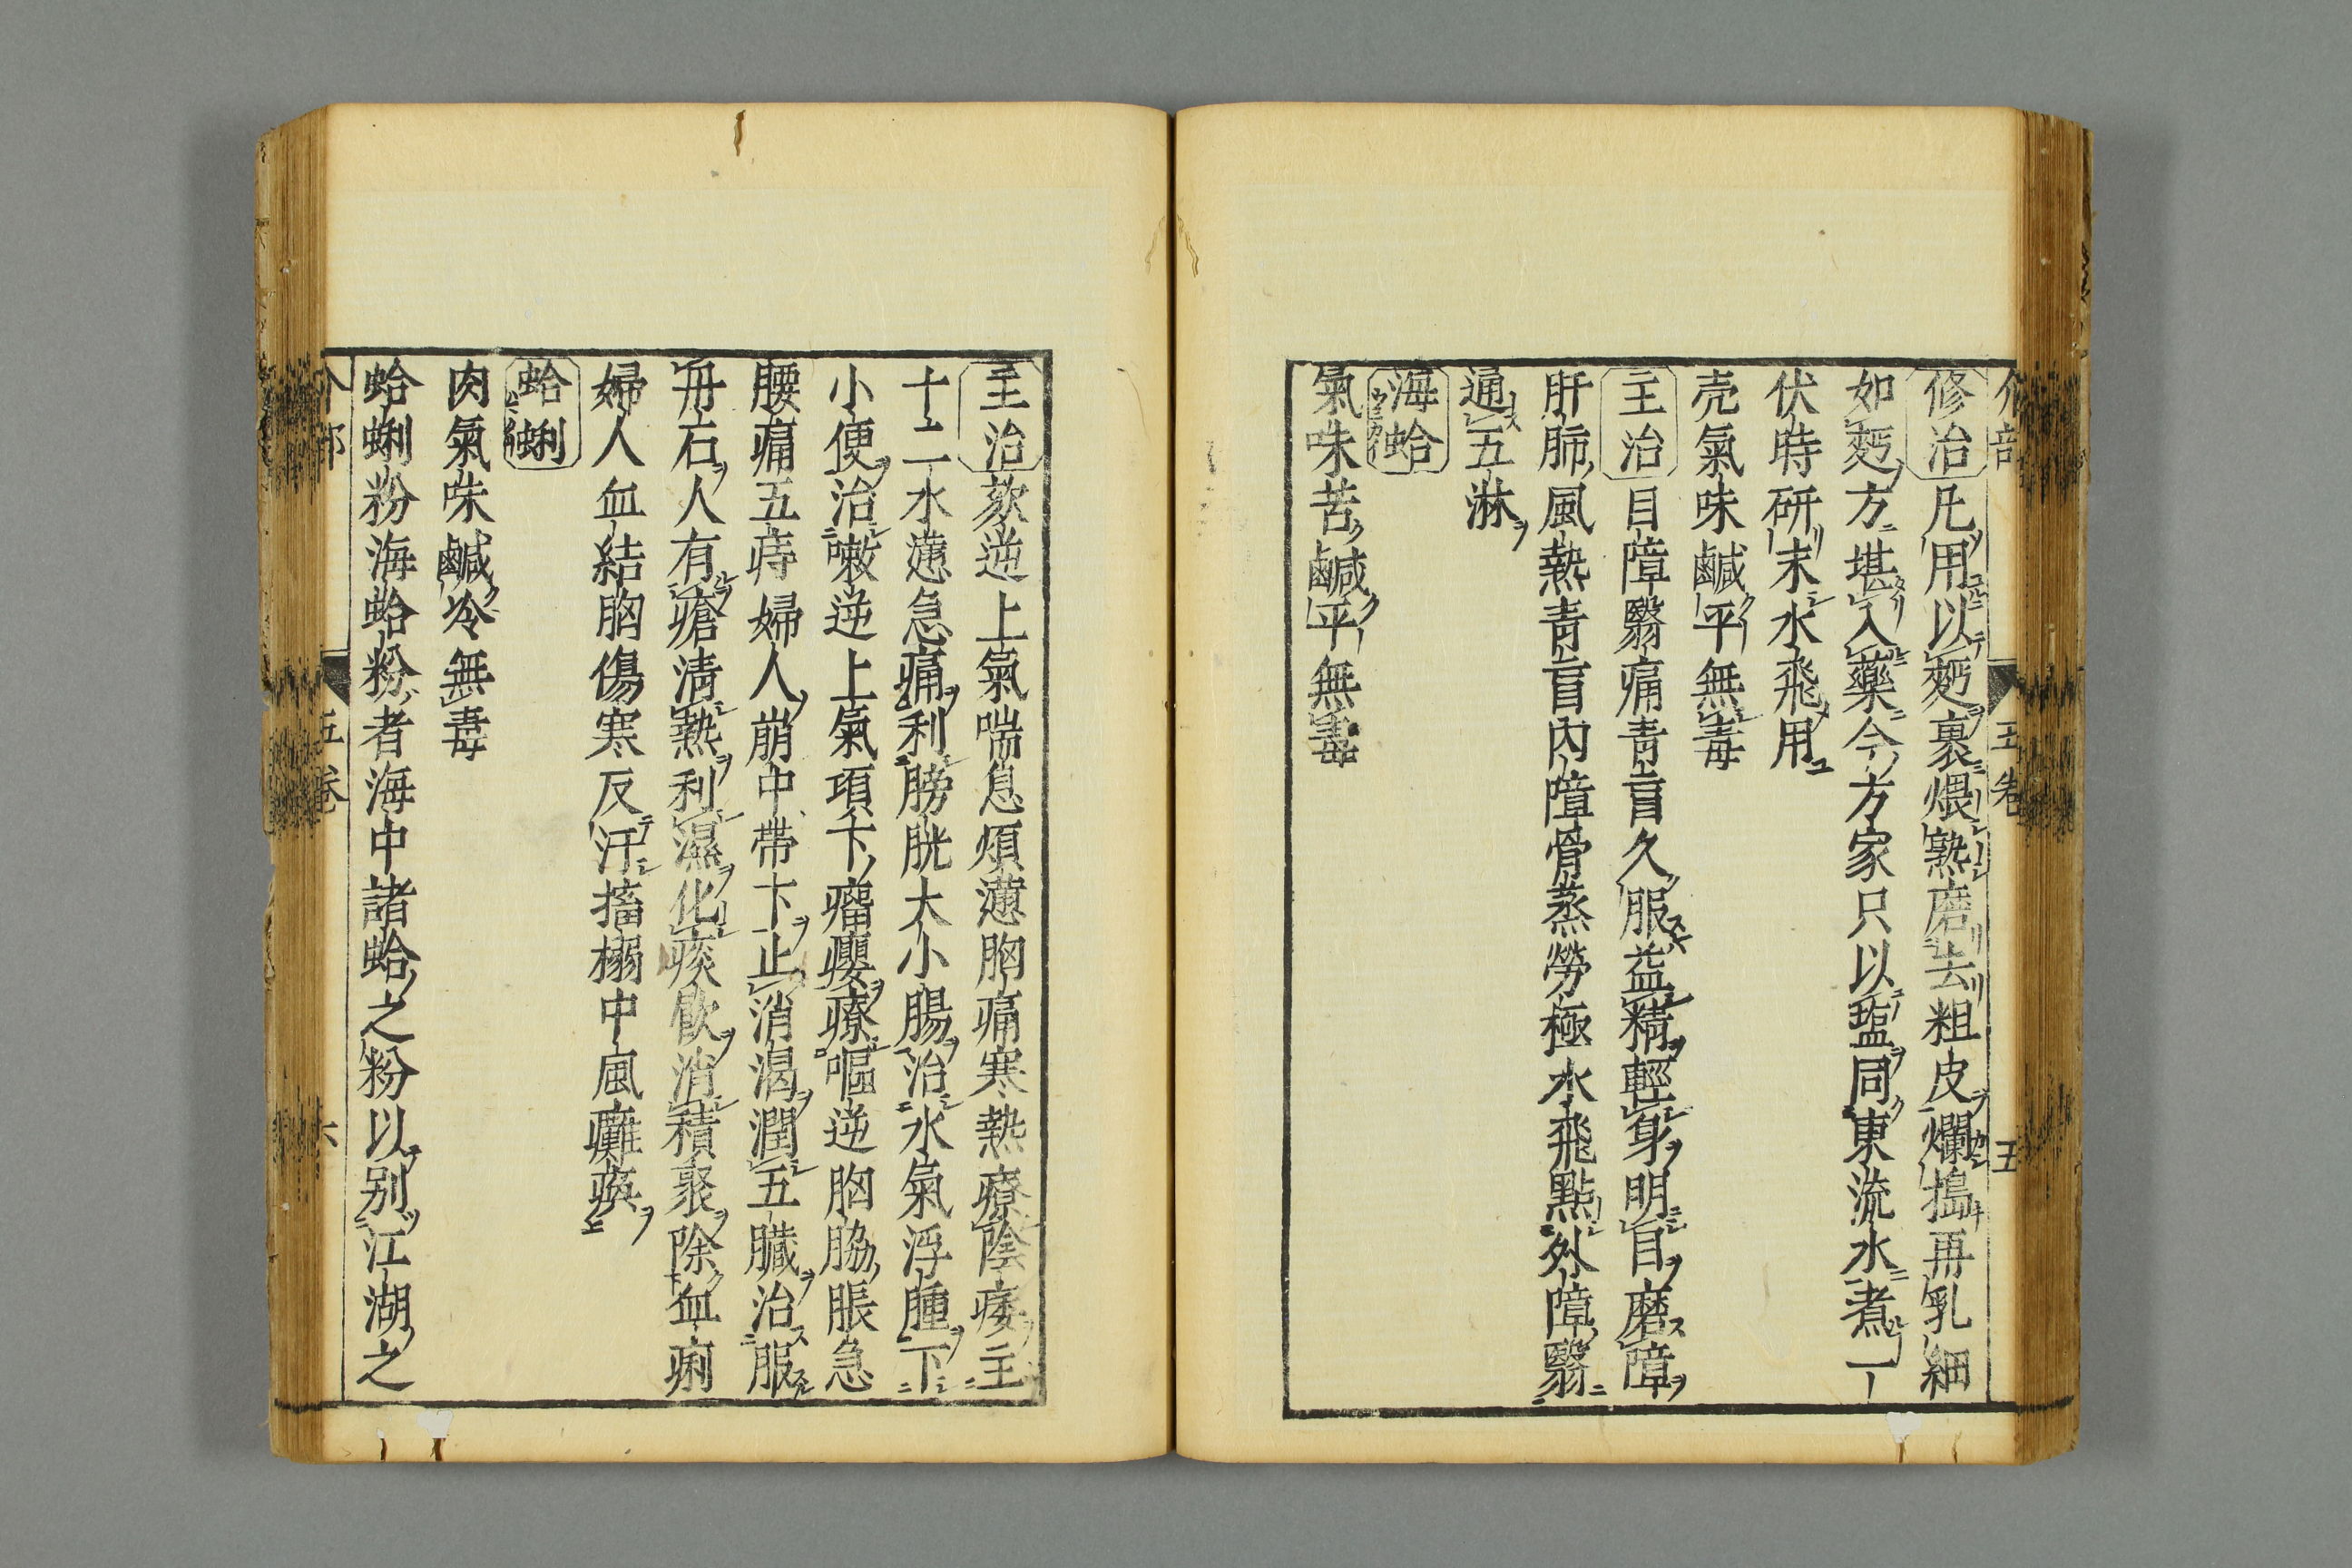 介部 五卷 五
修治凡用以麪裹煨熟磨去粗皮爛搗再乳細
如麪方堪入藥今方家只以塩同東流水煮一
伏時研末水飛用
壳氣味鹹平無毒
主治目障翳痛青盲久服益精輕身明目磨障
肝肺風熱青盲內障骨蒸勞極水飛點外障翳
通五淋
海蛤
氣味苦鹹平無毒
主治欬逆上氣喘息煩懣胸痛寒熱療陰痿主
十二水懣急痛利膀胱大小腸治水氣浮腫下
小便治嗽逆上氣項下瘤癭療嘔逆胸脇脹急
腰痛五痔婦人崩中帶下止消渴潤五臟治服
丹石人有瘡清熱利濕化痰飲消積聚除血痢
婦人血結胸傷寒反汗搐搦中風癱瘓
蛤蜊
肉氣味鹹冷無毒
蛤蜊粉海蛤粉者海中諸蛤之粉以别江湖之
介部 五卷 六